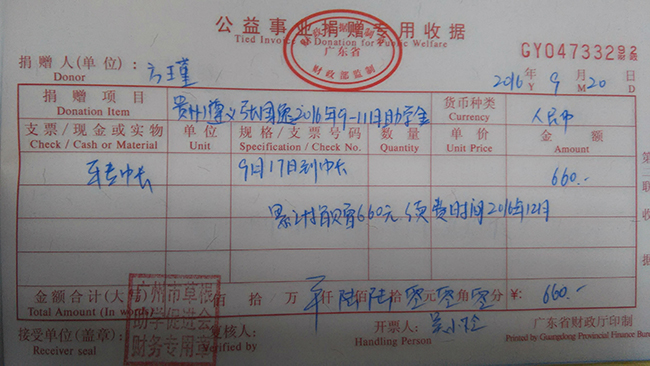 公益事业捐赠专用收据
Tied Invoice of Donation for Public Welfare
财政部监制
广东省
GY04733292
捐赠人(单位):
Donor
2016年9月20日
Y M D
捐赠项目 贵州遵义 2016年9-11月助学金 货币种类 人民币
Donation Item Currency
支票/现金或实物 单位 规格/支票号码 数量 单价 金额
Check / Cash or Material Unit Specification / Check No. Quantity Unit Price Amount
9月17日到 660.-
累计捐赠660元 续费时间2016年12月
金额合计(大写) 佰 拾 万 仟 陆佰陆拾零元零角零分 ¥: 660.-
Total Amount (In words)
广州市草根
助学促进会
财务专用章
接受单位(盖章): 复核人: 开票人: 广东省财政厅印制
Receiver seal Verified by Handling Person Printed by Guangdong Provincial Finance Bureau